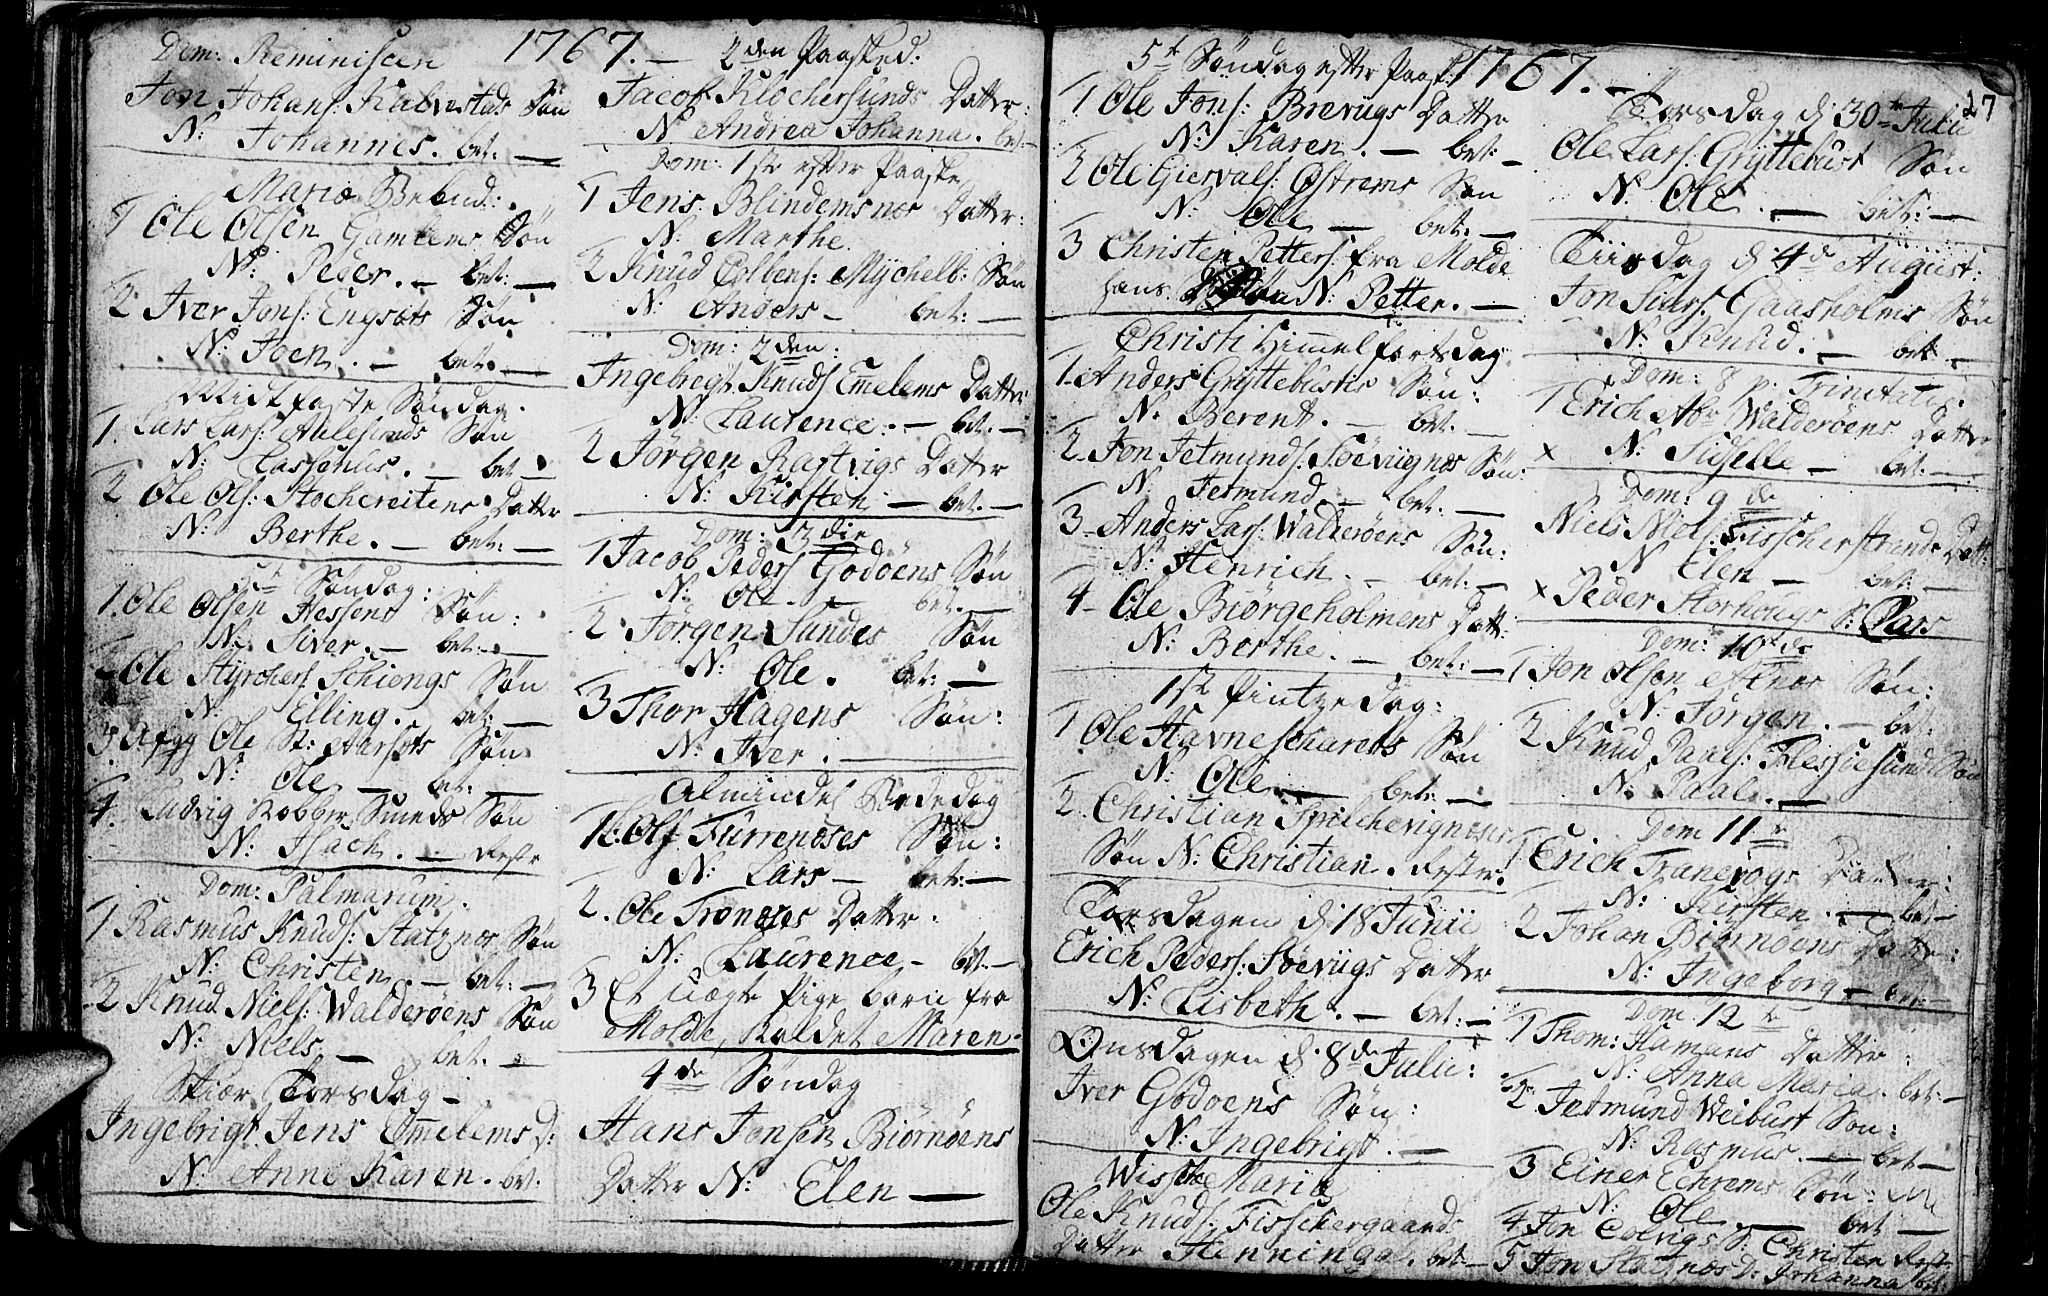 1767.
Dom: Reminiscer
Jon Johans: Kalvestads Søn
N: Johannes. bet: —
Mariæ Bebud:
1 Ole Olsen Gamlems Søn
N: Peder. — bet: —
2 Iver Jons: Engsæts Søn
N: Joen. — bet: —
Midfaste Søndag.
1. Lars Lars: Aalesunds Søn
N: — bet:
2 Ole Ols: Stochreitens Datter
N: Berthe. — bet: —
5te Søndag:
1. Ole Olsen Hessens Søn:
N: Siver. — bet: —
2 Ole Styrchers: Schiongs Søn
N: Elling. bet: —
3. Ole Aarsæts Søn
N: Ole — bet: —
4. Ludvig Robber Sunds Søn
N: Isach. — rester
Dom: Palmarum.
1 Rasmus Knuds: Statznes Søn
N: Christen. — bet: —
2 Knud Niels: Walderøens Søn
N: Niels — bet: —
Skiær Torsdag —
Ingebrigt Jens Emelems D:
N: Anne Karen. bet.
2den Paasked:
Jacob Klochersunds Datter:
N Andrea Johanna. bet: —
Dom: 1ste efter Paaske
1 Jens Blindemsnes Datter:
N: Marthe
2 Knud Colbens: Mychelb: Søn
N: Anders — bet: —
Dom: 2den:
Ingebregt Knuds Emelems Datter
N: Laurence: — bet. —
2 Jørgen Rastvigs Datter
N: Kirsten — bet. —
Dom: 3die
1 Jacob Peders Godøens Søn
N: Ole. — bet. —
2. Jørgen Sundes Søn
N: Ole. bet: —
3 Thor Hagens Søn:
N: Iver. —
Almindel Bededag
1. Ols Furrenæses Søn:
N: Lars — bet: —
2. Ole Tronæses Datter.
N: Laurence — bet. —
3 Et uægte Pige barn fra
Molde, kaldet Maren.
4de Søndag
Hans Jonsen Biørnøens
Datter N: Elen —
1767. —
27
5te Søndag efter Paask:
1 Ole Jons: Brevigs Datter
N: Karen. — bet: —
2 Ole Giervals: Østrems Søn
N: Ole — bet: —
3 Christen Petters: fra Molde
hans Søn N: Petter. —
Christi Himmelfartsdag
1. Anders Gryttebustes Søn:
N: Berent. — bet. —
2. Jon Jetmunds: Søevignes Søn:
N: Jetmund. — bet. —
3. Anders Lars: Walderøens Søn:
N: Henrich. — bet: —
4 — Ole Biørgeholmens Datt:
N: Berthe. — bet: —
1ste Pintzedag:
1 Ole Havneschærets Søn
N: Ole. — bet: —
2. Christian Spilchevignæses
Søn N: Christian. Rester.
Torsdagen d: 18 Junii
Erich Peders: Søevigs Datter
N: Lisbeth. — bet: —
Onsdagen d. 8de Julii:
Iver Godøens Søn:
N: Ingebrigt. —
Wissche Mariæ
Ole Knuds: Fisschergaards
Datter Henninga. bet: —
Torsdag d: 30te Julii
Ole Lars: Gryttebust Søn
N: Ole. — bet: —
Tiisdag d 4de August:
Jon Gaasholms Søn
N: Knud. — bet —
Dom: 8 p: Trinitatis.
1 Erich Abr Walderøens Datter
× N: Sidselle — bet: —
Dom: 9de
Niels Niels: Fisscherstrands Datt:
N Elen — bet: —
× Peder Storhougs S: Lars
Dom: 10de
1 Jon Olsen Alnes Søn:
N: Jørgen. — bet:
2 Knud Paals: Flessiesunds Søn
N: Paal. —
Dom 11te
1 Erich Tranevogs Datter:
N: Kirsten. — bet —
2 Johan Biørnøens Datter:
N: Ingeborg — bet: —
Dom. 12te
1 Thom: Hamans Datter:
N: Anna Maria. bet: —
2 Jetmund Weibust Søn:
N: Rasmus. — bet —
3 Einer Echrems Søn:
N: Ole — bet —
4 Jon Colvigs S: Christen Rest:
5 Jon Statznes D: Johanna bet: